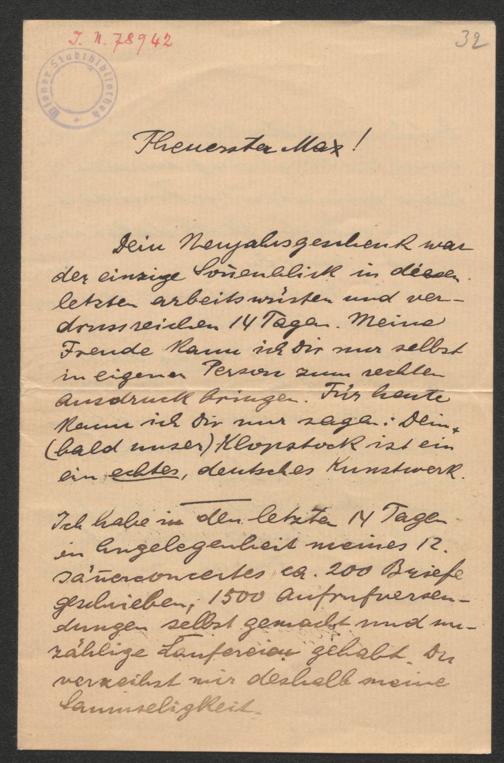 I. N. 78942
32
Wiener Stadtbibliothek
Theuerster Max!
Dein Neujahrsgeschenk war
der einzige Sonnenblick in diesen
letzten arbeitswüsten und ver-
drussreichen 14 Tagen. Meine
Freude kann ich Dir nur selbst
in eigener Person zum rechten
Ausdruck bringen. Für heute
kann ich Dir nur sagen: Dein,
(bald unser) Klopstock ist ein
ein echtes, deutsches Kunstwerk.
Ich habe in den letzten 14 Tagen
in Angelegenheit meines 12.
ca. 200 Briefe
geschrieben, 1500 Aufrufversen-
dungen selbst gemacht und un-
zählige Laufereien gehabt. Du
verzeihst mir deshalb meine
Saumseligkeit.